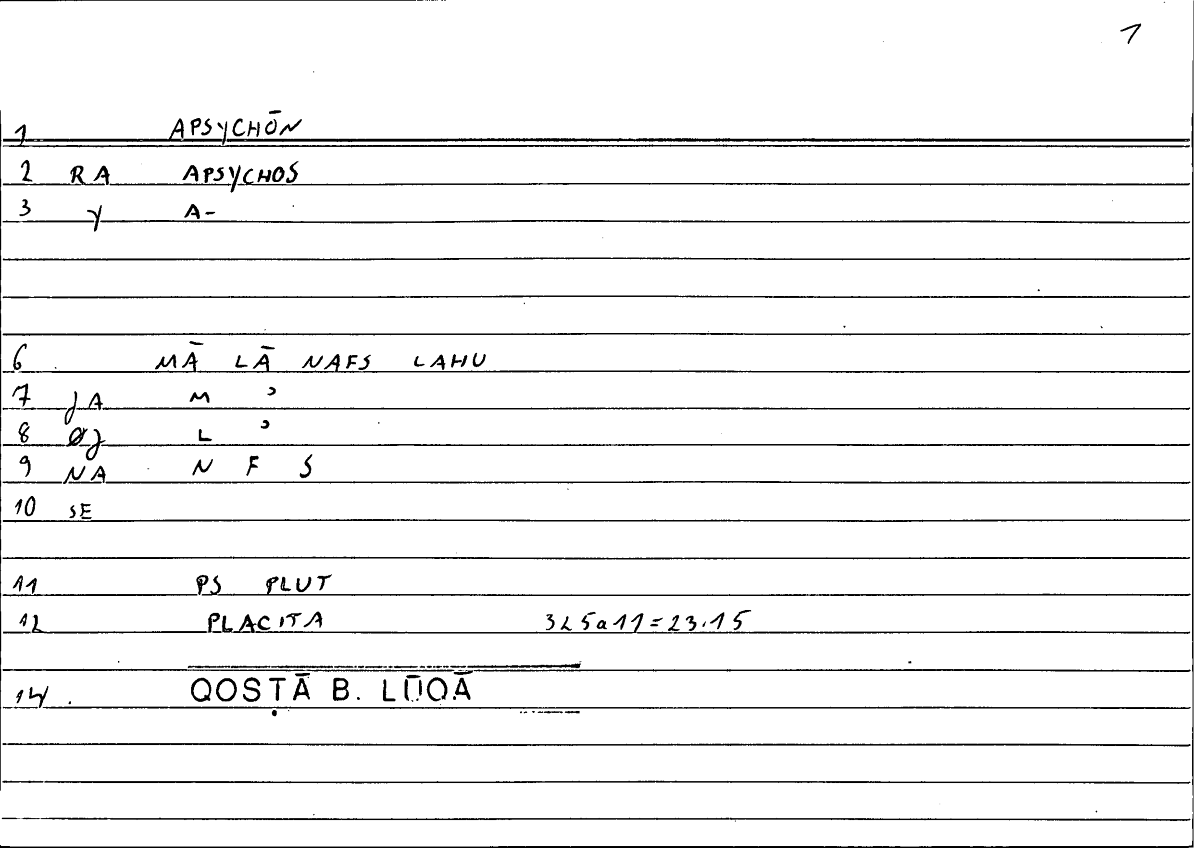 1
1 APSYCHŌN
2 RA APSYCHOS
3 γ A-
6 MĀ LĀ NAFS LAHU
7 JA M ʾ
8 ØJ L ʾ
9 NA N F S
10 SE
11 PS PLUT
12 PLACITA 325a11=23.15
14 QOSṬĀ B. LŪQĀ